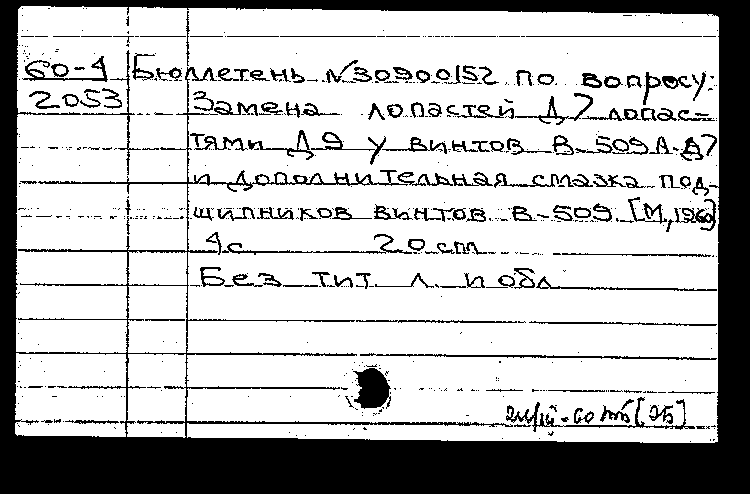 60-4 Бюллетень №30900152 по вопросу:
2053 Замена лопастей Д7 лопас-
тями Д9 у винтов В-509А-Д7
и дополнительная смазка под-
шипников винтов В-509. [М, 1960]
4с. 20 см
Без тит. л. и обл.
[ЭБ]